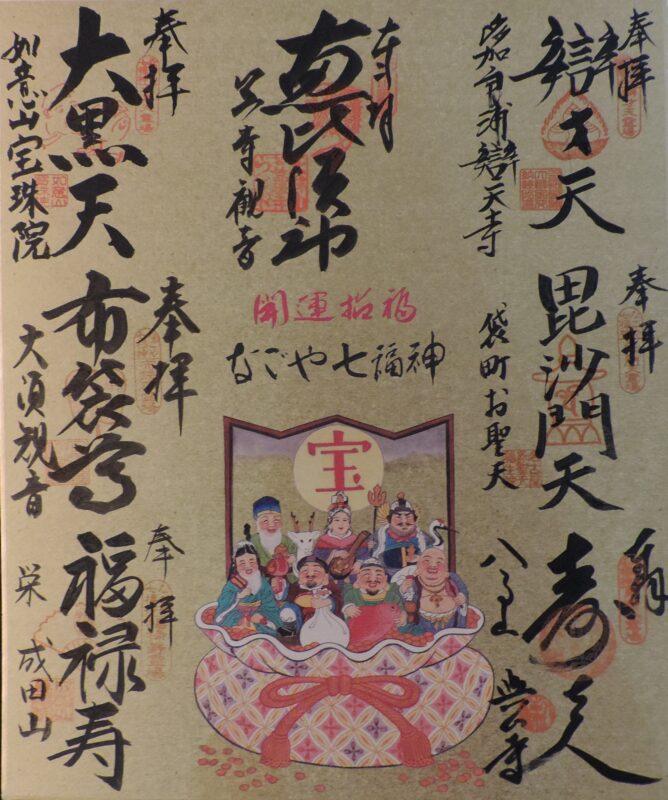 奉拝
辯才天
多加良浦辯天寺
奉拝
毘沙門天
袋町お聖天
奉拝
寿老人
八事山 興正寺
奉拝
恵比須神
笠寺観音
開運招福
なごや七福神
宝
奉拝
大黒天
如意山宝珠院
奉拝
布袋尊
大須観音
奉拝
福禄寿
栄 成田山